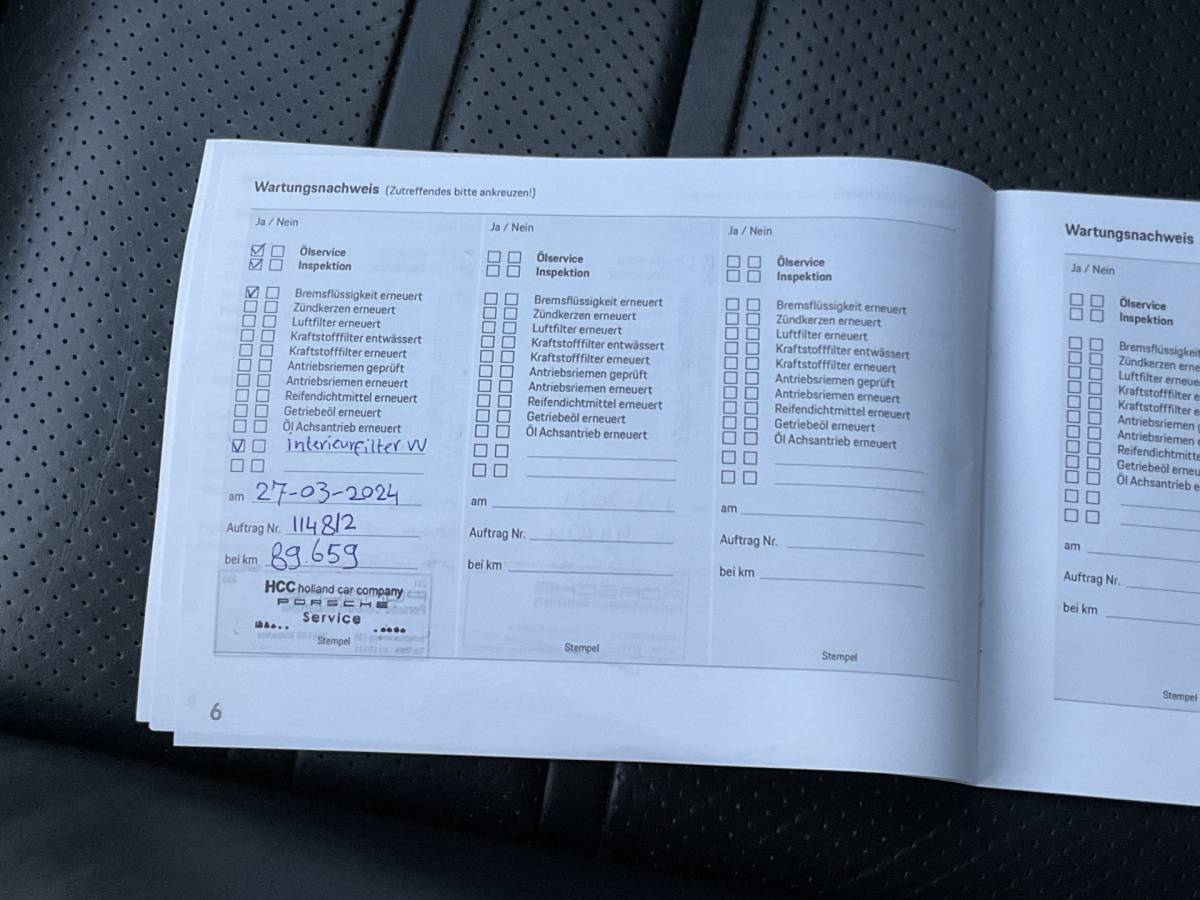 Wartungsnachweis (Zutreffendes bitte ankreuzen!)
Ja / Nein
Ölservice
Inspektion
Bremsflüssigkeit erneuert
Zündkerzen erneuert
Luftfilter erneuert
Kraftstofffilter entwässert
Kraftstofffilter erneuert
Antriebsriemen geprüft
Antriebsriemen erneuert
Reifendichtmittel erneuert
Getriebeöl erneuert
Öl Achsantrieb erneuert
interieurfilter VV
am 27-03-2024
Auftrag Nr. 114812
bei km 89.659
HCC holland car company
PORSCHE
Service
Stempel
Ja / Nein
Ölservice
Inspektion
Bremsflüssigkeit erneuert
Zündkerzen erneuert
Luftfilter erneuert
Kraftstofffilter entwässert
Kraftstofffilter erneuert
Antriebsriemen geprüft
Antriebsriemen erneuert
Reifendichtmittel erneuert
Getriebeöl erneuert
Öl Achsantrieb erneuert
am
Auftrag Nr.
bei km
Stempel
Ja / Nein
Ölservice
Inspektion
Bremsflüssigkeit erneuert
Zündkerzen erneuert
Luftfilter erneuert
Kraftstofffilter entwässert
Kraftstofffilter erneuert
Antriebsriemen geprüft
Antriebsriemen erneuert
Reifendichtmittel erneuert
Getriebeöl erneuert
Öl Achsantrieb erneuert
am
Auftrag Nr.
bei km
Stempel
6
Wartungsnachweis
Ja / Nein
Ölservice
Inspektion
Bremsflüssigkeit
Zündkerzen erne
Luftfilter erneue
Kraftstofffilter e
Kraftstofffilter e
Antriebsriemen g
Antriebsriemen e
Reifendichtmitte
Getriebeöl erneu
Öl Achsantrieb e
am
Auftrag Nr.
bei km
Stempel